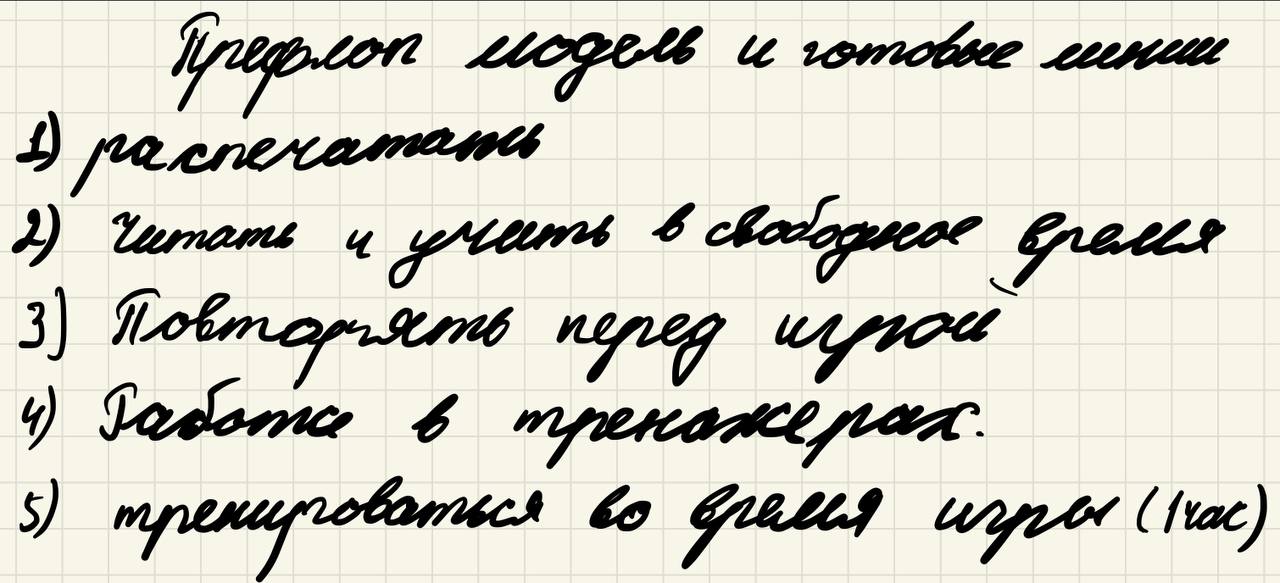 Префлоп модель и готовые линии
1) распечатать
2) Читать и учить в свободное время
3) Повторять перед игрой
4) Работа в тренажерах.
5) тренироваться во время игры (1 час)